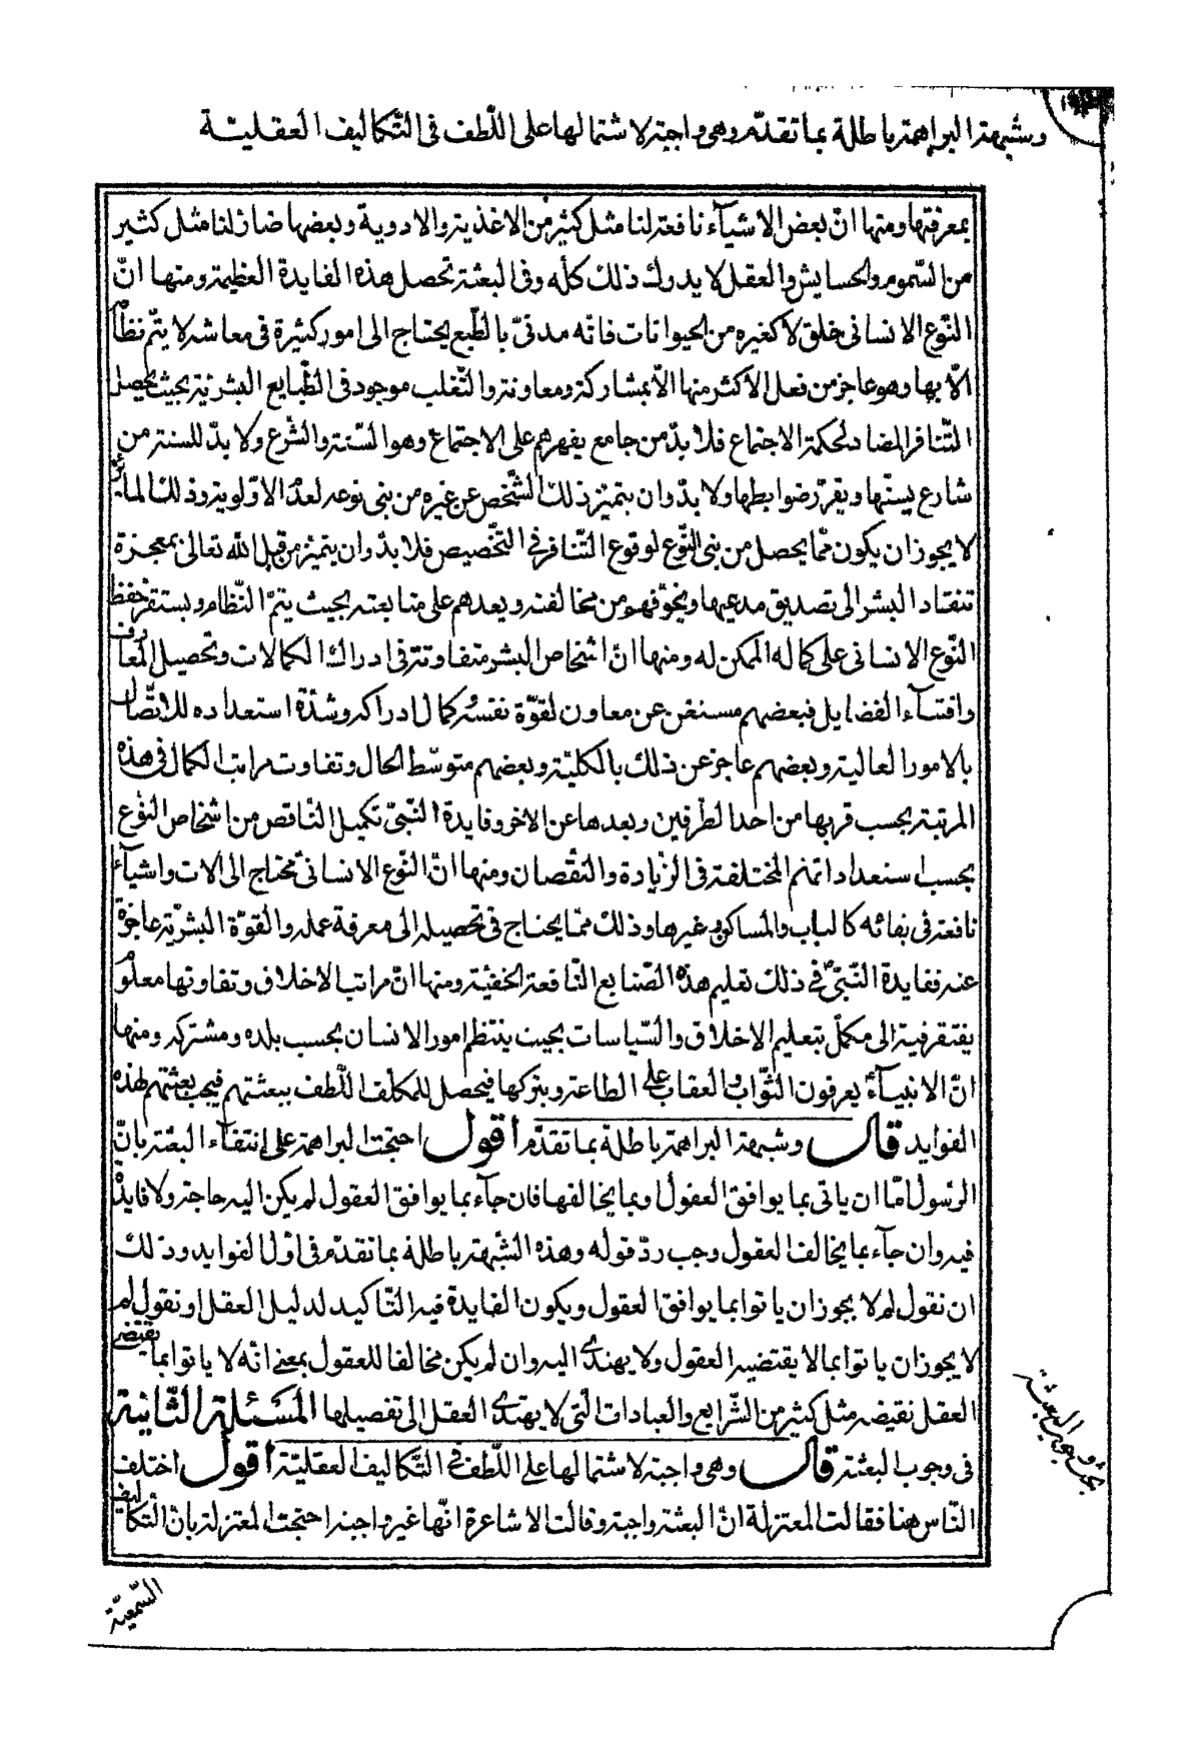 وشبهة البراهمة باطلة بما تقدّم وهى واجبة لاشتمالها على اللّطف فى التّكاليف العقليّة
بمعرفتها ومنها انّ بعض الاشيآء نافعة لنا مثل كثير من الاغذية والادوية وبعضها ضارّ لنا مثل كثير
من السّموم والحسايش والعقل لا يدرك ذلك كلّه وفى البعثة تحصل هذه الفايدة العظيمة ومنها انّ
النّوع الانسانى خلق لا كغيره من الحيوانات فانّه مدنىّ بالطّبع يحتاج الى امور كثيرة فى معاشه لا يتمّ نظامه
الّا بها وهو عاجز من فعل الاكثر منها الّا بمشاركة ومعاونة والتّغلب موجود فى الطّبايع البشريّة بحيث يحصل
التّنافر المضاد لحكمة الاجتماع فلا بدّ من جامع يقهرهم على الاجتماع وهو السّنة والشّرع ولا بدّ للسنة من
شارع يسنّها ويقرّر ضوابطها ولا بدّ وان يتميّز ذلك الشّخص عن غيره من بنى نوعه لعدم الاوّلوية وذلك المايز
لا يجوز ان يكون ممّا يحصل من بنى النّوع لوقوع التّنافر فى التّخصيص فلا بدّ وان يتميّز من قبل الله تعالى بمعجزة
تنقاد البشر الى تصديق مدعيها ويخوّفهم من مخالفته ويعدهم على متابعته بحيث يتمّ النّظام ويستقرّ حفظ
النّوع الانسانى على كماله الممكن له ومنها انّ اشخاص البشر متفاوتة فى ادراك الكمالات وتحصيل المعارف
واقتناء الفضايل فبعضهم مستغن عن معاون لقوّة نفسه وكمال ادراكه وشدّة استعداده للاتّصال
بالامور العالية وبعضهم عاجز عن ذلك بالكليّة وبعضهم متوسّط الحال وتفاوت مراتب الكمال فى هذه
المرتبة بحسب قربها من احد الطّرفين وبعدها عن الاخر وفايدة النّبىّ تكميل النّاقص من اشخاص النّوع
بحسب استعداداتهم المختلفة فى الزّيادة والنّقصان ومنها انّ النّوع الانسانىّ محتاج الى الات واشيآء
نافعة فى بقائه كالباب والمساكن وغيرها وذلك ممّا يحتاج فى تحصيله الى معرفة عمله والقوّة البشريّة عاجزة
عنه ففايدة النّبىّ فى ذلك تعليم هذه الصّنايع النّافعة الخفيّة ومنها انّ مراتب الاخلاق وتفاوتها معلوم
يفتقر فيه الى مكمّل بتعليم الاخلاق والسّياسات بحيث ينتظم امور الانسان بحسب بلده ومشتركه ومنها
انّ الانبيآء يعرفون الثّواب والعقاب على الطاعة وبتركها فيحصل للمكلّف اللّطف ببعثتهم فيجب بعثتهم لهذه
الفوايد قال وشبهة البراهمة باطلة بما تقدّم اقول احتجت البراهمة على انتفآء البعثة بانّ
الرّسول امّا ان ياتى بما يوافق العقول او بما يخالفها فان جآء بما يوافق العقول لم يكن اليه حاجة ولا فايدة
فيه وان جآء بما يخالف العقول وجب ردّ قوله وهذه الشّبهة باطلة بما تقدّم فى اوّل الفوايد وذلك
ان نقول لم لا يجوز ان ياتوا بما يوافق العقول ويكون الفايدة فيه التّاكيد لدليل العقل او نقول لم
لا يجوز ان ياتوا بما لا يقتضيه العقول ولا يهتدى اليه وان لم يكن مخالفا للعقول بمعنى انّه لا ياتوا بما يقتضى
العقل نقيضه مثل كثير من الشّرايع والعبادات الّتى لا يهتدى العقل الى تفصيلها المسئلة الثّانية
فى وجوب البعثة قال وهى واجبة لاشتمالها على اللّطف فى التّكاليف العقليّة اقول اختلف
النّاس هنا فقالت المعتزلة انّ البعثة واجبة وقالت الاشاعرة انّها غير واجبة احتجت المعتزلة بانّ التّكاليف
السّمعيّة